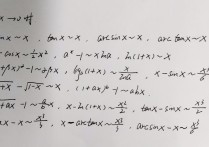 x→0 时
x ~ x, tanx ~ x, arcsinx ~ x, arctanx ~ x
cosx ~ ½x², aˣ-1 ~ xlna, ln(1+x) ~ x
-1 ~ βx, logₐ(1+x) ~ x/lna, x-sinx ~ x³/6
-√1-x ~ x, (1+ax)ᵇ-1 ~ abx
-1 ~ x, x-ln(1+x) ~ x²/2, tanx-sinx ~ x³/2
x-x ~ x³/3, x-arctanx ~ x³/3, arcsinx-x ~ x³/6